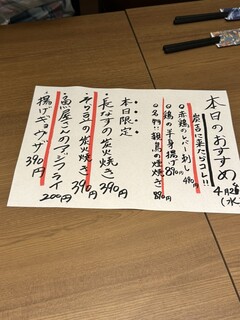 本日のおすすめ
4月2日(水)
炭るに来たらコレ!!
赤鶏のレバー刺し 480円
鶏の半身揚げ 890円
名物!! 親鳥の燻焼き 890円
本日限定
・長なすの炭火焼き 390円
・そら豆の炭火焼き 390円
・魚屋さんのアジフライ 200円
・揚げギョウザ 390円